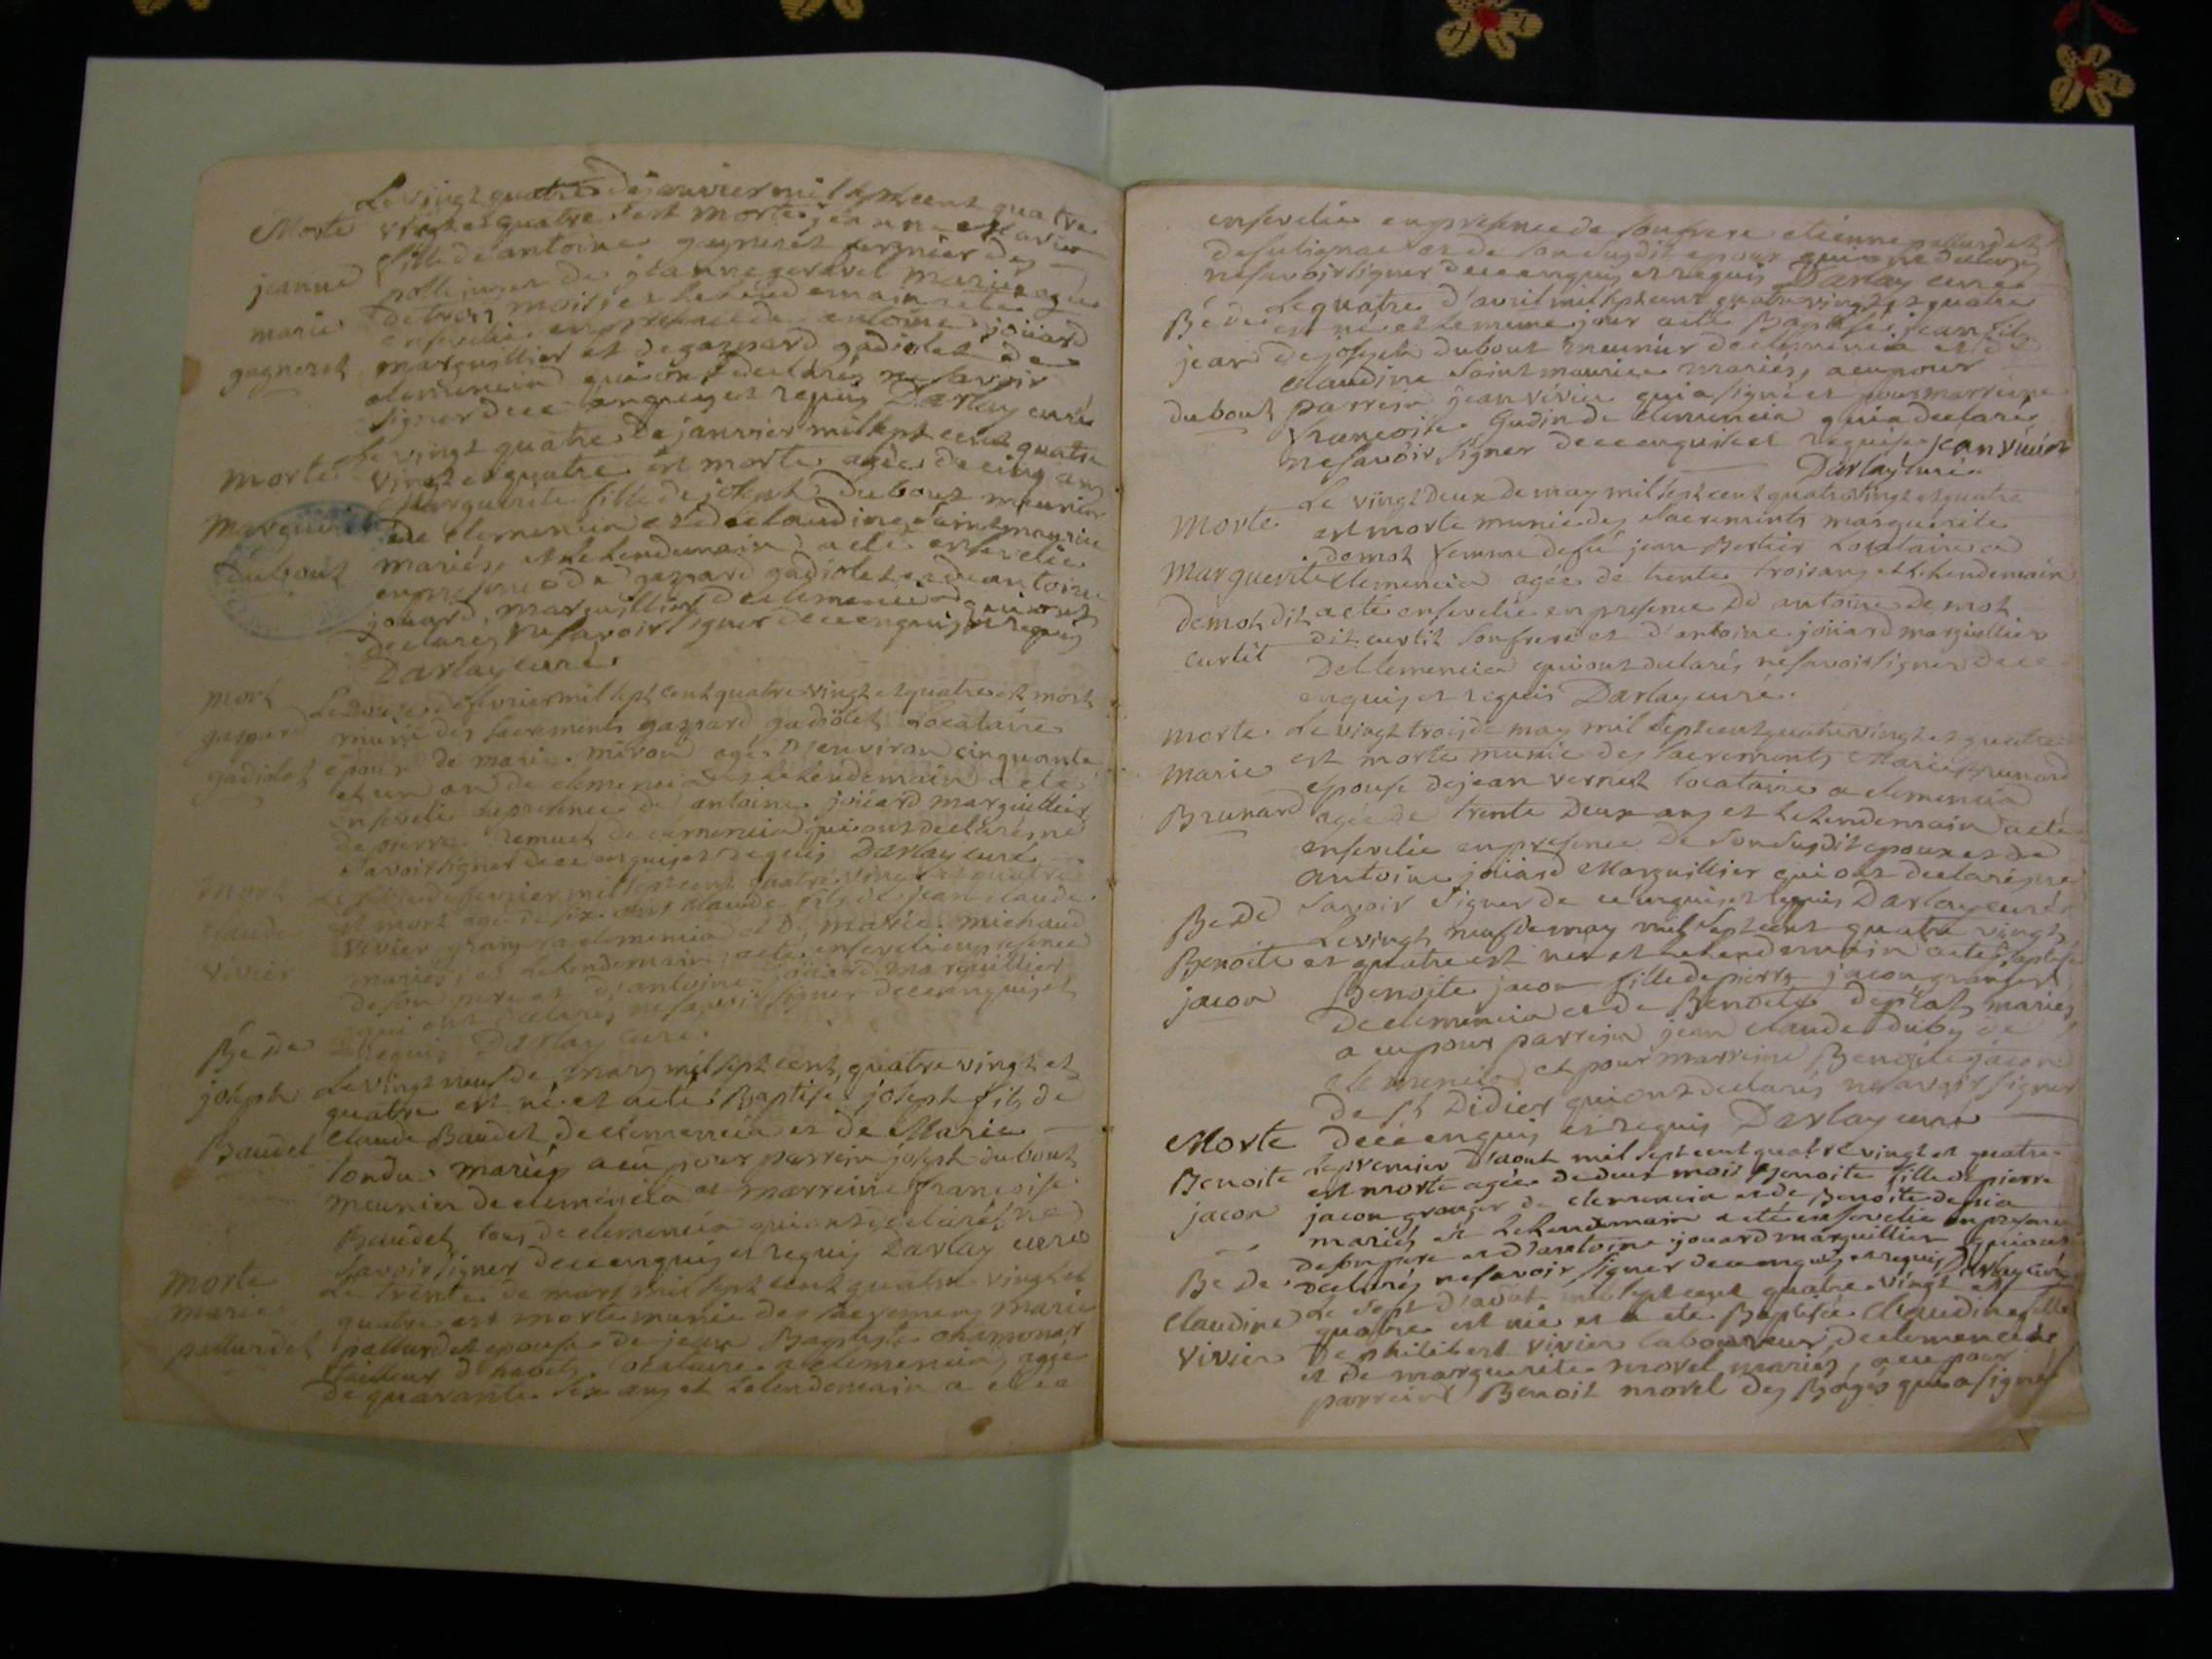 Le vingt quatre de janvier mil sept cent quatre
Morte vingt et quatre est morte jeanne marie
fille de antoine gagneret fermier des
jeanne polle de jeanne geravel mariés agée
marie de trois mois et le lendemain a ete
ensevelie en presence de antoine joüard
gagneret marguillier et de gaspard gadiolet de
clemencia qui ont declarés ne savoir
signer de ce enquis et requis Darlay curé
Le vingt quatre de janvier mil sept cent quatre
morte vingt et quatre est morte agée de cinq ans
Marguerite fille de joseph dubout meunier
Marguerite de clemencia et de claudine saint maurice
dubout mariés et le lendemain a eté ensevelie
en presence de gaspard gadiolet et de antoine
jouard, marguillier de clemencia qui ont
declarés ne savoir signer de ce enquis et requis
Darlay curé
mort Le douze de fevrier mil sept cent quatre vingt et quatre est mort
gaspard muni des sacrements gaspard gadiolet Locataire
gadiolet epoux de marie miron agé d'environ cinquante
et un an de clemencia et le lendemain a ete
enseveli en presence de antoine joüard marguillier
de pierre remuet de clemencia qui ont declarés ne
savoir signer de ce enquis et requis Darlay curé
Mort Le de fevrier mil sept cent quatre vingt et quatre
claude est mort agé de six claude fils de jean claude
vivier granger a clemencia et de marie michaud
vivier mariés, et le lendemain a ete enseveli en presence
de son pere et d'antoine joüard marguillier
qui ont declarés ne savoir signer de ce enquis et
Be de requis Darlay curé.
joseph Le vingt neuf de mars mil sept cent quatre vingt et
quatre est né et a eté Baptisé joseph fils de
Baudet claude Baudet de clemencia et de Marie
tondu mariés a eü pour parrein joseph dubout
meunier de clemencia et marreine françoise
Baudet tous de clemencia qui ont declarés ne
savoir signer de ce enquis et requis Darlay curé
morte Le trente de mars mil sept cent quatre vingt et
marie quatre est morte munie des sacremens marie
pallurdet pallurdet epouse de jean Baptiste
tailleur d'habits locataire a clemencia, agée
de quarante six ans et le lendemain a ete
ensevelie en presence de son frere etienne pallurdet
de et de son susdit epoux qui ont declarés
ne savoir signer de ce enquis et requis Darlay curé
Be de Le quatre d'avril mil sept cent quatre vingt et quatre
est né et le meme jour a eté Baptisé jean fils
jean de joseph dubout meunier de clemencia et de
claudine saint maurice mariés, a eu pour
dubout parrein jean vivier qui a signé et pour marreine
françoise Gudin de clemencia qui a declaré
ne savoir signer de ce enquise et requise jean vivier
Darlay curé
Le vingt deux de may mil sept cent quatre vingt et quatre
morte est morte munie des sacrements marguerite
demot femme de feû jean Bertier Locataire a
marguerite clemencia agée de trente trois ans et le lendemain
demot dit a eté ensevelie en presence de antoine demot
curtil dit curtil son frere et d'antoine joüard marguillier
de clemencia qui ont declarés ne savoir signer de ce
enquis et requis Darlay curé.
morte Le vingt trois de may mil sept cent quatre vingt et quatre
marie est morte munie des sacrements Marie Brunard
epouse de jean vernet locataire a clemencia
Brunard agée de trente deux ans et le lendemain a eté
ensevelie en presence de son susdit epoux et de
antoine joüard Marguillier qui ont declarés ne
Be de savoir signer de ce enquis et requis Darlay curé
Le vingt neuf de may mil sept cent quatre vingt
Benoite et quatre est née et le lendemain a eté baptisée
jacon Benoite jacon fille de pierre jacon granger
de clemencia et de Benoite mariés,
a eu pour parrein jean claude duby de
clemencia et pour marreine Benoite jacon
de St Didier qui ont declarés ne savoir signer
Morte de ce enquis et requis Darlay curé
Benoite Le premier d'aout mil sept cent quatre vingt et quatre
est morte agée de deux mois Benoite fille de pierre
jacon jacon granger de clemencia et de Benoite
mariés et le lendemain a eté ensevelie en presence
de son pere et d'antoine joüard marguillier qui ont
Be de declarés ne savoir signer de ce enquis et requis Darlay curé
claudine Le sept d'aout mil sept cent quatre vingt et
quatre est née et a eté Baptisée claudine fille
vivier de philibert vivier laboureur de clemencia
et de marguerite morel mariés, a eu pour
parrein Benoit morel des Bages qui a signé